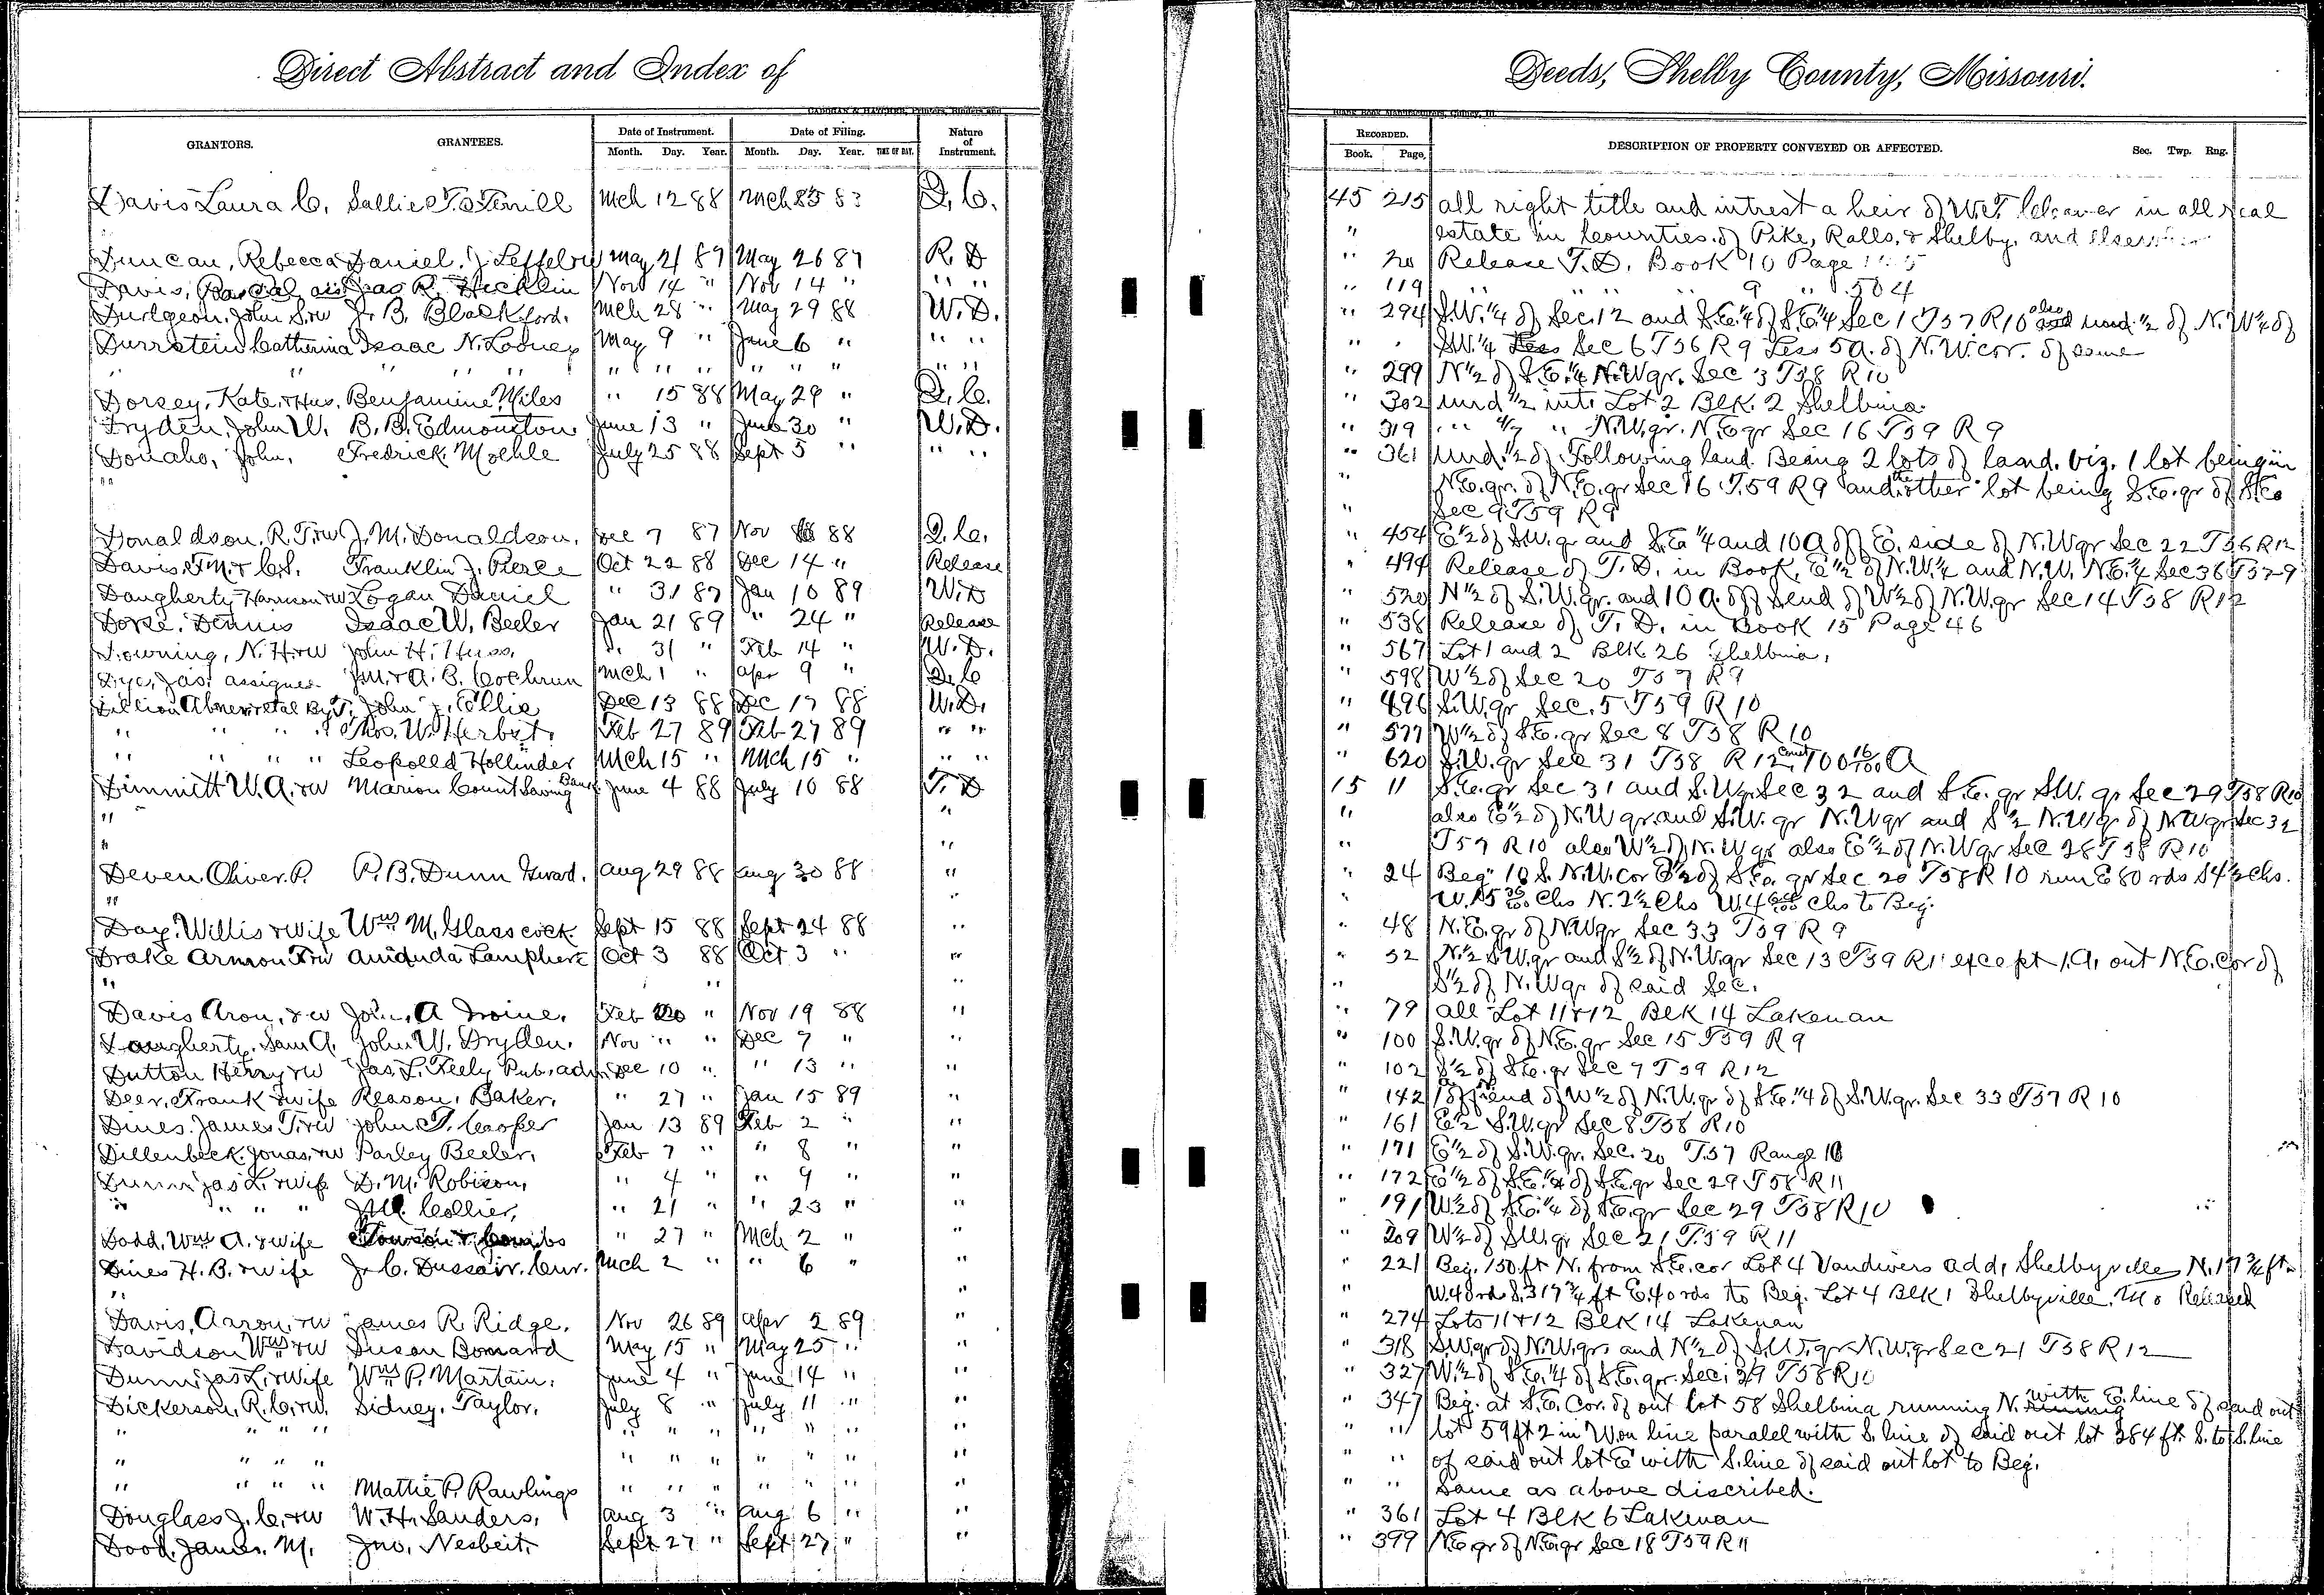 Direct Abstract and Index of Deeds, Shelby County, Missouri.
CADOGAN & HATCHER, Printers, Binders and Blank Book Manufacturers, Quincy, Ill.
GRANTORS. GRANTEES. Date of Instrument. Date of Filing. Nature of Instrument. RECORDED. DESCRIPTION OF PROPERTY CONVEYED OR AFFECTED. Sec. Twp. Rng.
Month. Day. Year. Month. Day. Year. TIME OF DAY. Book. Page.
Davis Laura C. Sallie T. Terrill Mch 12 88 Mch 83 Q.C. 45 215 all right title and intrest a heir of W.T. Cleaver in all real
" estate in Counties of Pike, Ralls, & Shelby, and
Duncan, Rebecca Daniel. J. May 21 87 May 26 87 R.D " 20 Release T.D. Book 10 Page
Davis, Jas R. Hicklin Nov 14 " Nov 14 " " " " 119 " " " " 9 " 504
Durgeon, John S. &w J. B. Blackford. Mch 28 " May 29 88 W.D. " 294 S.W. 1/4 of Sec. 12 and S.E. 1/4 of S.E. 1/4 Sec 1 T57 R10 also und. 1/2 of N.W 1/4 of
Durrstein Catherina Isaac N. Looney May 9 " June 6 " " " " " S.W. 1/4 Sec 6 T56 R 9 Less 5 a. of N.W. cor. of same
" " " " " " " " " " " " " " " 299 N 1/2 of S.E. 1/4 N.W qr. Sec 3 T58 R 10
Dorsey, Kate, & Hus. Benjamine Miles " 15 88 May 29 " Q.C. " 302 und 1/2 int. Lot 2 Blk. 2 Shelbina
Dryden, John W. B. B. Edmonston June 13 " June 30 " W.D. " 319 " " N.W. qr. N.E qr Sec 16 T59 R 9
Donaho, John. Fredrick Moehle July 25 88 Sept 5 " " " " 361 Und. 1/2 of Following land. Being 2 lots of land. viz. 1 lot being in
" " N.E. qr. of N.E. qr Sec 16 T.59 R 9 and the other lot being S.E. qr of S.E
" Sec 9 T59 R 9
Donaldson, R. T. &w J. M. Donaldson. Dec 7 87 Nov 88 Q.C. " 454 E 1/2 of S.W. qr and S.E 1/4 and 10 A off E. side of N.W qr Sec 22 T56 R 12
Davis, T.M. & C.S. Franklin J. Pierce Oct 22 88 Dec 14 " Release " 494 Release of T.D. in Book, E 1/2 of N.W. 1/4 and N.W. N.E. 1/4 Sec 36 T57-9
Daugherty Harrison &w Logan Daniel " 31 87 Jan 10 89 W.D " 520 N 1/2 of S.W. qr. and 10 a. off S end of W 1/2 of N.W. qr Sec 14 T58 R12
Dorse. Dennis Isaac W. Beeler Jan 21 89 " 24 " Release " 538 Release of T.D. in Book 15 Page 46
Downing, N. H. &w John H. Huss. " 31 " Feb 14 " W.D. " 567 Lot 1 and 2 Blk. 26 Shelbina,
Dye, Jas. assignee J.M. & A. B. Cochrun Mch 1 " apr 9 " Q.C " 598 W 1/2 of Sec 20 T57 R 9
Dillion Abner et al By T. John J. Ellis Dec 13 88 Dec 17 88 W.D. " 496 S.W. qr Sec. 5 T59 R 10
" " " " Thos. W. Herbst. Feb 27 89 Feb 27 89 " " " 577 W 1/2 of S.E. qr Sec 8 T58 R 10
" " " " Leopolld Hollinder Mch 15 " Mch 15 " " " " 620 S.W. qr Sec 31 T58 R 12 cont 100 16/100 A
Dimmitt W. A. &w Marion Count Saving Bank June 4 88 July 10 88 T.D 15 11 S.E. qr Sec 31 and S.W qr Sec 32 and S.E. qr S.W. qr Sec 29 T58 R10
" " " also E 1/2 of N.W qr. and S.W. qr N.W qr and S 1/2 N.W qr of N.W qr Sec 32
" " " T57 R 10 also W 1/2 of N.W qr also E 1/2 of N.W qr Sec 28 T 58 R 10
Deven, Oliver. P. P. B. Dunn Guard. Aug 29 88 Aug 30 88 " " 24 Beg. 10 S. N.W. cor E 1/2 of S.E. qr Sec 20 T58 R 10 run E 80 rds S 4 1/2 chs.
" " Chs N. 2 1/2 Chs W. 4 Chs to Beg.
Day, Willis & Wife Wm M. Glasscock Sept 15 88 Sept 24 88 " " 48 N.E. qr of N.W qr Sec 33 T59 R 9
Drake Armon T &w Lamphere Oct 3 88 Oct 3 " " " 52 N. 1/2 S.W. qr and S 1/2 of N.W. qr Sec 13 T59 R11 except 1. A. out N.E. Cor of
" " " " S 1/2 of N.W qr of said Sec.
Davis Aron, & w John. A Irvine. Feb 20 " Nov 19 88 " " 79 all Lot 11 & 12 Blk 14 Lakenan
Daugherty, Sam A. John W. Dryden. Nov " " Dec 7 " " " 100 S.W. qr of N.E. qr Sec 15 T59 R 9
Dutton Henry &w Jas. L. Feely Pub. adm. Dec 10 " " 13 " " " 102 S 1/2 of S.E. qr Sec 7 T59 R 12
Deer, Frank & wife Reason. Baker. " 27 " Jan 15 89 " " 142 end of W 1/2 of N.W. qr of S.E. 1/4 of S.W. qr. Sec 33 T57 R 10
Dines. James T. &w John T. Cooper Jan 13 89 Feb 2 " " " 161 E 1/2 S.W. qr Sec 8 T58 R 10
Dillenbeck. Jonas, &w Parley Beeler. Feb 7 " " 8 " " " 171 E 1/2 of S.W. qr. Sec. 20 T.57 Range 10
Dunn Jas L. & wife D. M. Robison. " 4 " " 9 " " " 172 E 1/2 of S.E. 1/4 of S.E. qr Sec 29 T58 R 11
" " " " J.M. Collier. " 21 " " 23 " " " 191 W 1/2 of S.E. 1/4 of S.E. qr Sec 29 T58 R 10
Dodd, Wm A. & wife Towson & Combs " 27 " Mch 2 " " " 209 W 1/2 of S.W. qr Sec 21 T.59 R 11
Dines H. B. & wife J. C. Dussair. Cur. Mch 2 " " 6 " " " 221 Beg. 150 ft N. from S.E. cor Lot 4 Vandivers add, Shelbyville N. ft
" " " W. 40 rds S. 317 3/4 ft E. 40 rds to Beg. Lot 4 Blk 1 Shelbyville, Mo Released
Davis, Aaron, &w James R. Ridge. Nov 26 89 apr 2 89 " " 274 Lots 11 & 12 Blk 14 Lakenan
Davidson Wm &w Susan Bomard May 15 " May 25 " " " 318 S.W. qr of N.W. qr and N 1/2 of S.W. qr N.W. qr Sec 21 T58 R 12
Dunn, Jas L. & Wife Wm P. Martain. June 4 " June 14 " " " 327 W 1/2 of S.E. 1/4 of S.E. qr. Sec. 29 T58 R 10
Dickerson, R. C. &w. Sidney. Taylor. July 8 " July 11 " " " 347 Beg. at S.E. Cor. of out lot 58 Shelbina running N. with E. line of said out
" " " " " " " " " " " " " lot 59 ft 2 in W on line paralel with S. line of said out lot 284 ft. S. to S. line
" " " " " " " " " " " " " of said out lot E with S. line of said out lot to Beg.
" " " " Mattie P. Rawlings " " " " " " " " " Same as above discribed.
Douglass J. C. &w W. H. Sanders. Aug 3 " Aug 6 " " " 361 Lot 4 Blk 6 Lakenan
Dood, James. M. Jno. Nesbeit. Sept 27 " Sept 27 " " " 399 N.E. qr of N.E. qr Sec 18 T59 R 11